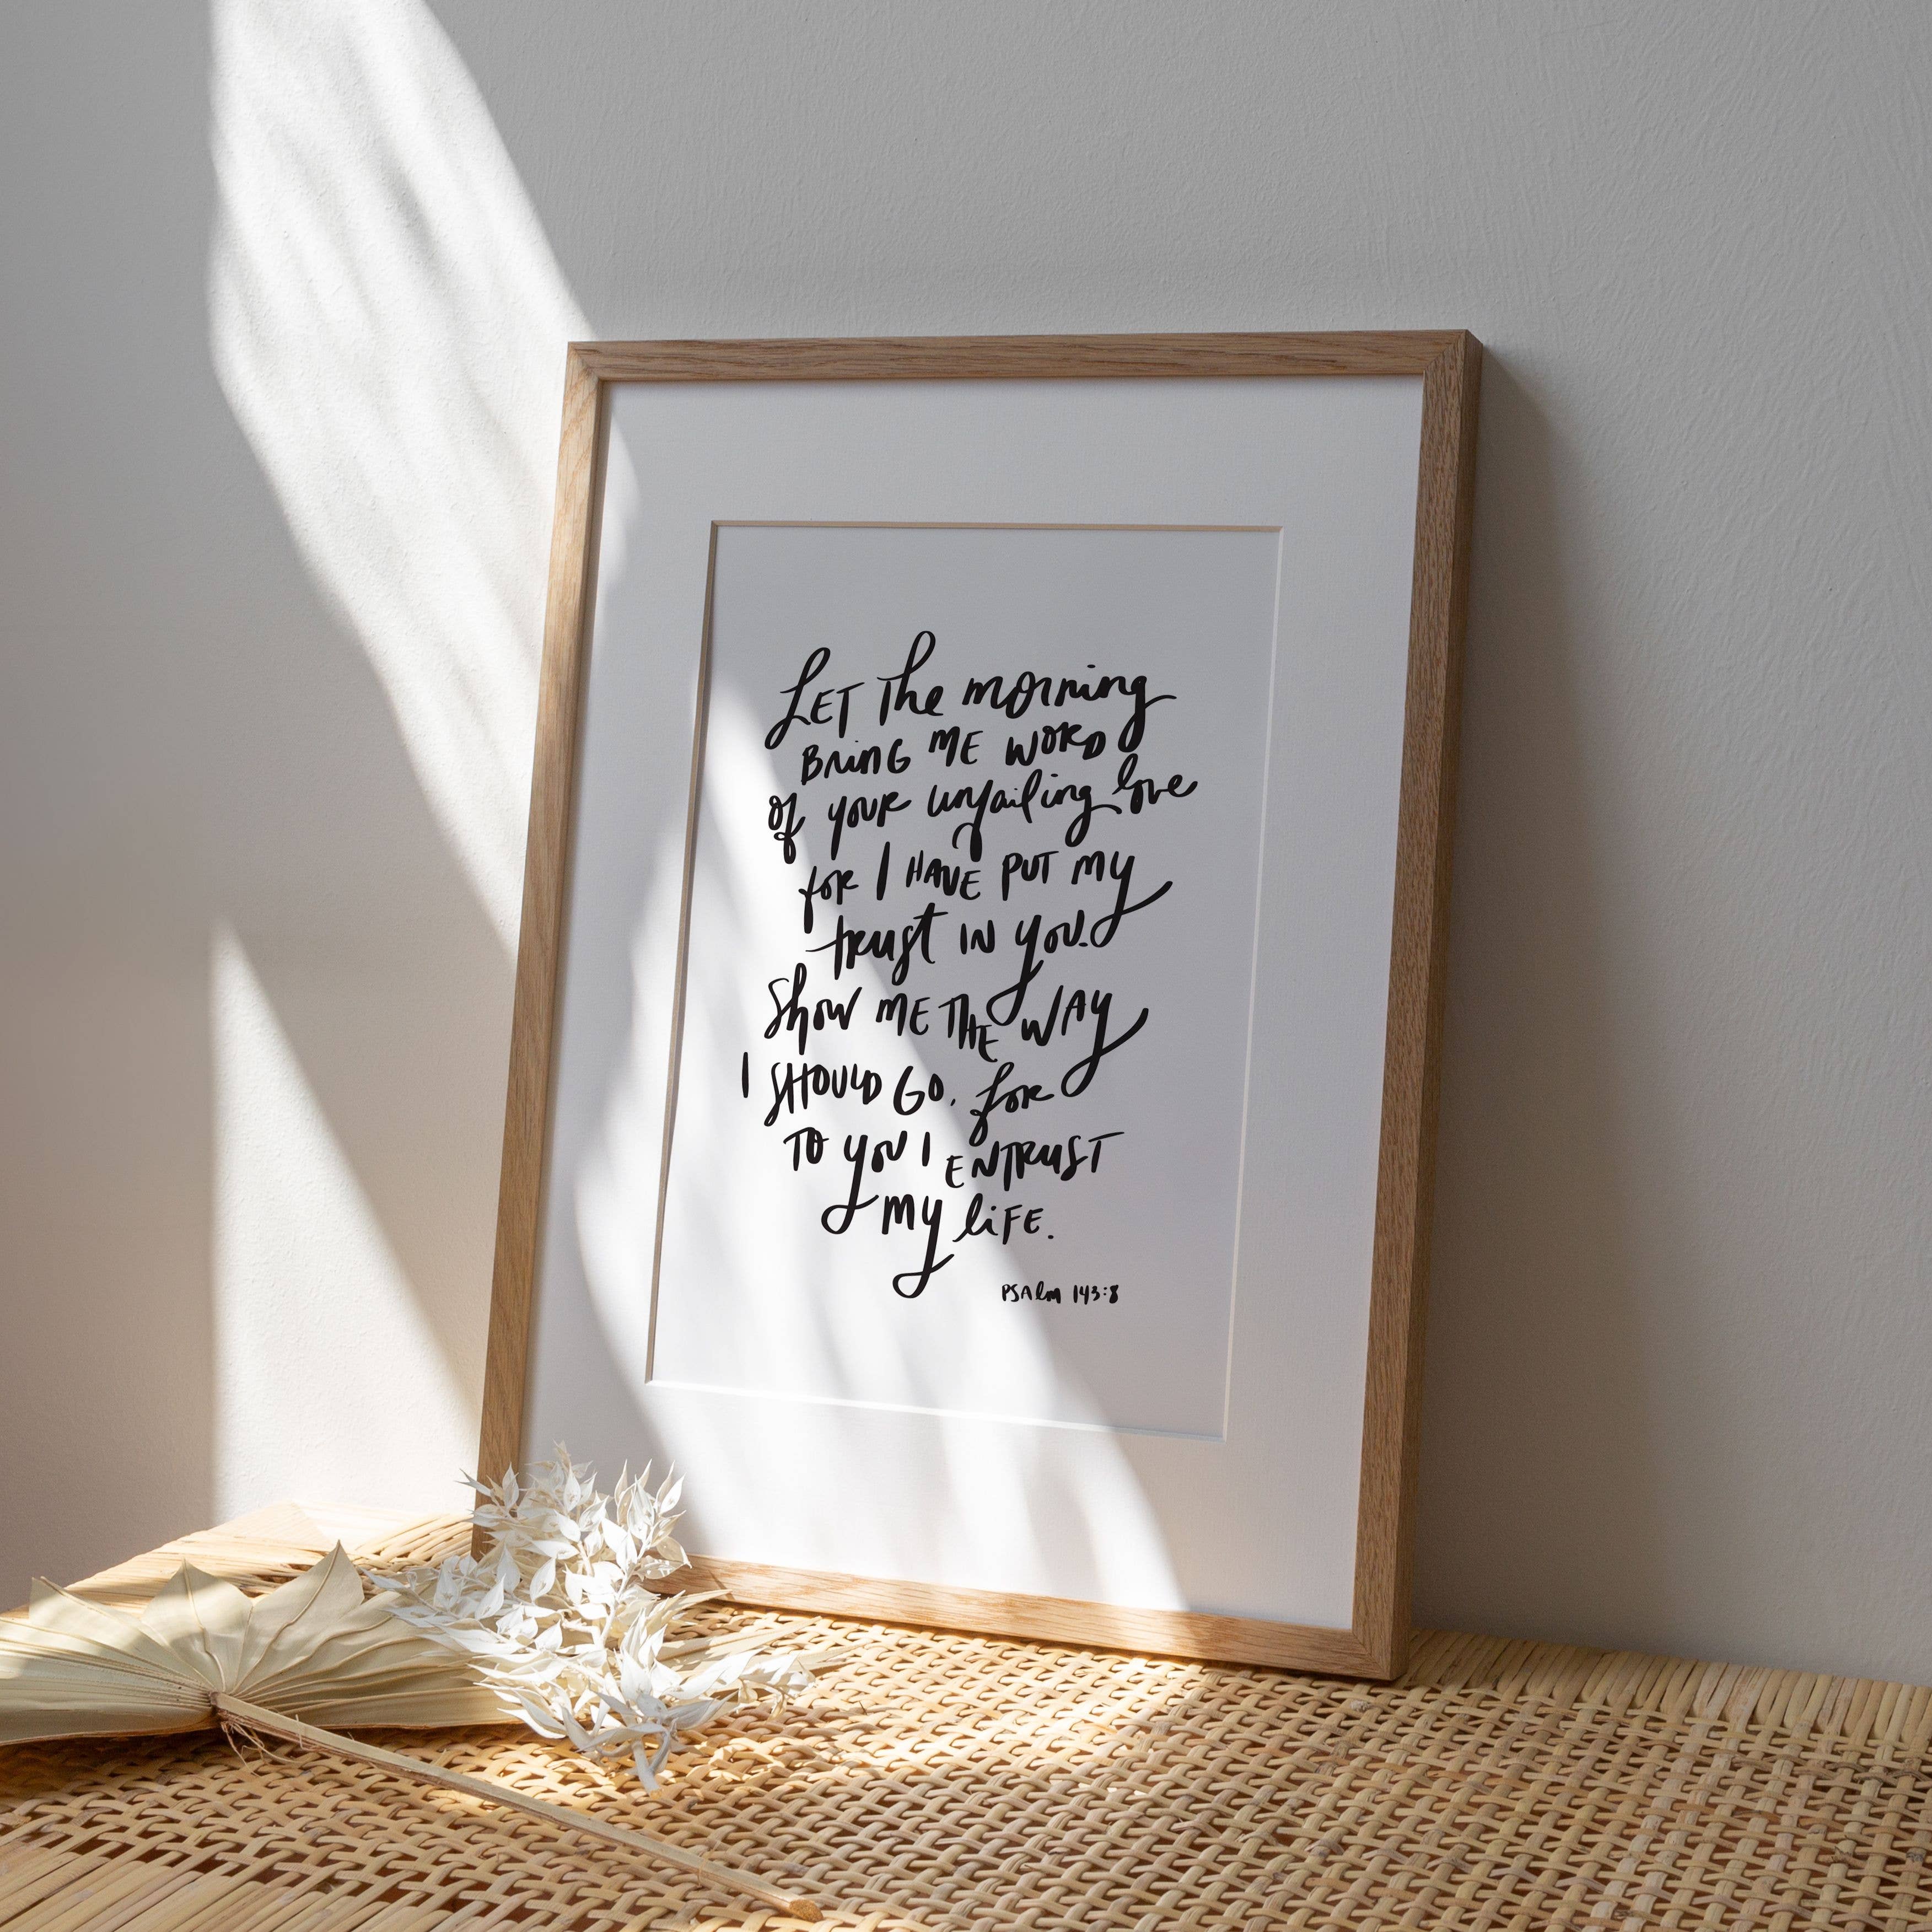 Let the morning
Bring ME WORD
of your unfailing love
for I HAVE PUT MY
trust IN you.
Show ME THE WAY
I SHOULD GO, for
TO you I ENTRUST
My liFE.
PSAlm 143:8